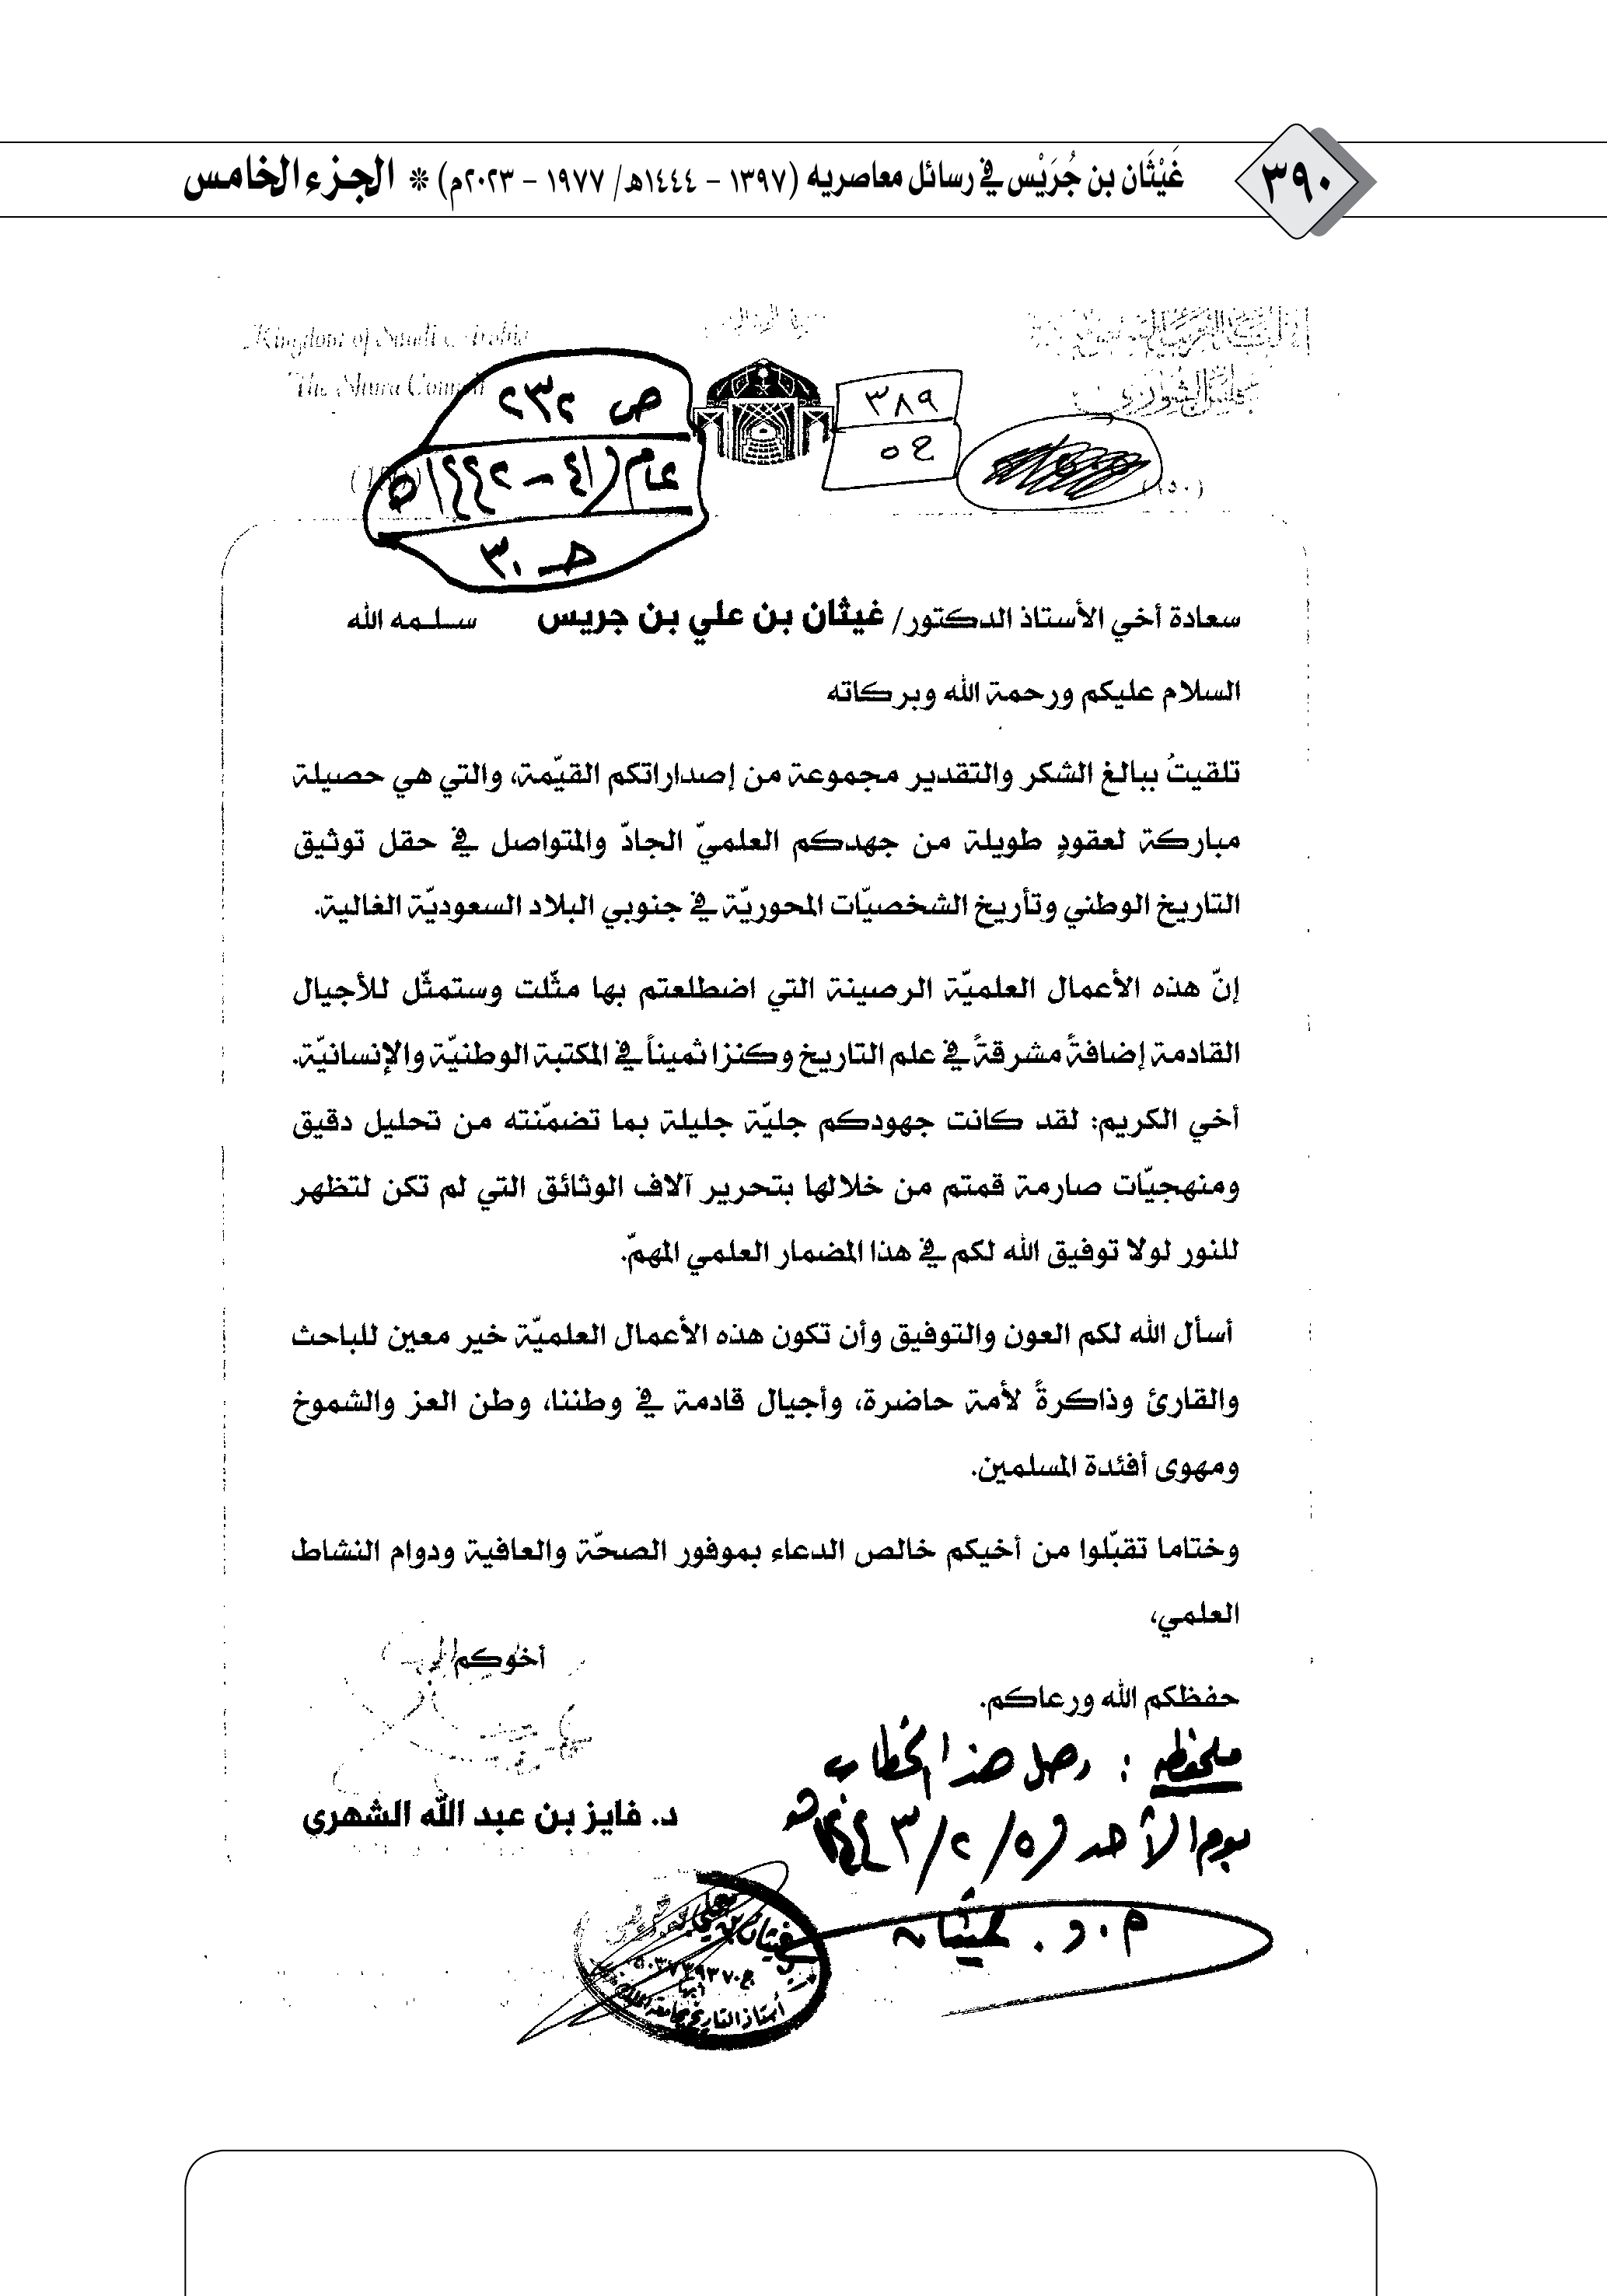 ٣٩٠
غَيْثَان بن جُرَيْس في رسائل معاصريه (١٣٩٧ – ١٤٤٤هـ/ ١٩٧٧ – ٢٠٢٣م) ❊ الجزء الخامس
المملكة العربية السعودية
مجلس الشورى
Kingdom of Saudi Arabia
The Shura Council
ص ٢٣٢
عام (٤١ – ١٤٤٢هـ)
جـ ٣٠
٣٨٩
(١٥٠)
سعادة أخي الأستاذ الدكتور/ غيثان بن علي بن جريس سلمه الله
السلام عليكم ورحمة الله وبركاته
تلقيتُ ببالغ الشكر والتقدير مجموعة من إصداراتكم القيّمة، والتي هي حصيلة
مباركة لعقودٍ طويلة من جهدكم العلميّ الجادّ والمتواصل في حقل توثيق
التاريخ الوطني وتأريخ الشخصيّات المحوريّة في جنوبي البلاد السعوديّة الغالية.
إنّ هذه الأعمال العلميّة الرصينة التي اضطلعتم بها مثّلت وستمثّل للأجيال
القادمة إضافةً مشرقةً في علم التاريخ وكنزا ثميناً في المكتبة الوطنيّة والإنسانيّة.
أخي الكريم: لقد كانت جهودكم جليّة جليلة بما تضمّنته من تحليل دقيق
ومنهجيّات صارمة قمتم من خلالها بتحرير آلاف الوثائق التي لم تكن لتظهر
للنور لولا توفيق الله لكم في هذا المضمار العلمي المهمّ.
أسأل الله لكم العون والتوفيق وأن تكون هذه الأعمال العلميّة خير معين للباحث
والقارئ وذاكرةً لأمة حاضرة، وأجيال قادمة في وطننا، وطن العز والشموخ
ومهوى أفئدة المسلمين.
وختاما تقبّلوا من أخيكم خالص الدعاء بموفور الصحّة والعافية ودوام النشاط
العلمي،
أخوكم
حفظكم الله ورعاكم.
ملحظه : وصل هذا الخطاب
د. فايز بن عبد الله الشهري
يوم الأحد (٥/٢/١٤٤٣هـ
م.د. غيثان
أستاذ التاريخ بجامعة الملك